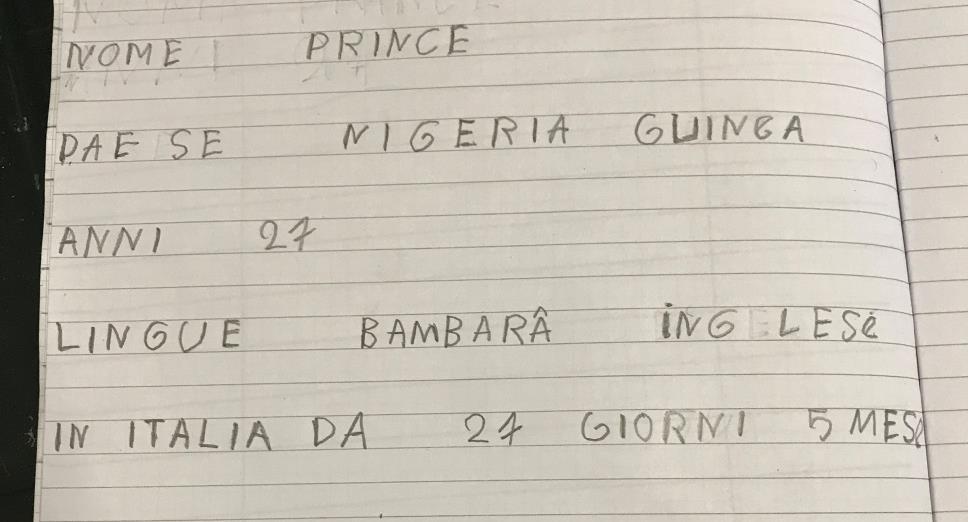 NOME PRINCE
PAESE NIGERIA GUINEA
ANNI 27
LINGUE BAMBARÂ INGLESE
IN ITALIA DA 27 GIORNI 5 MESI